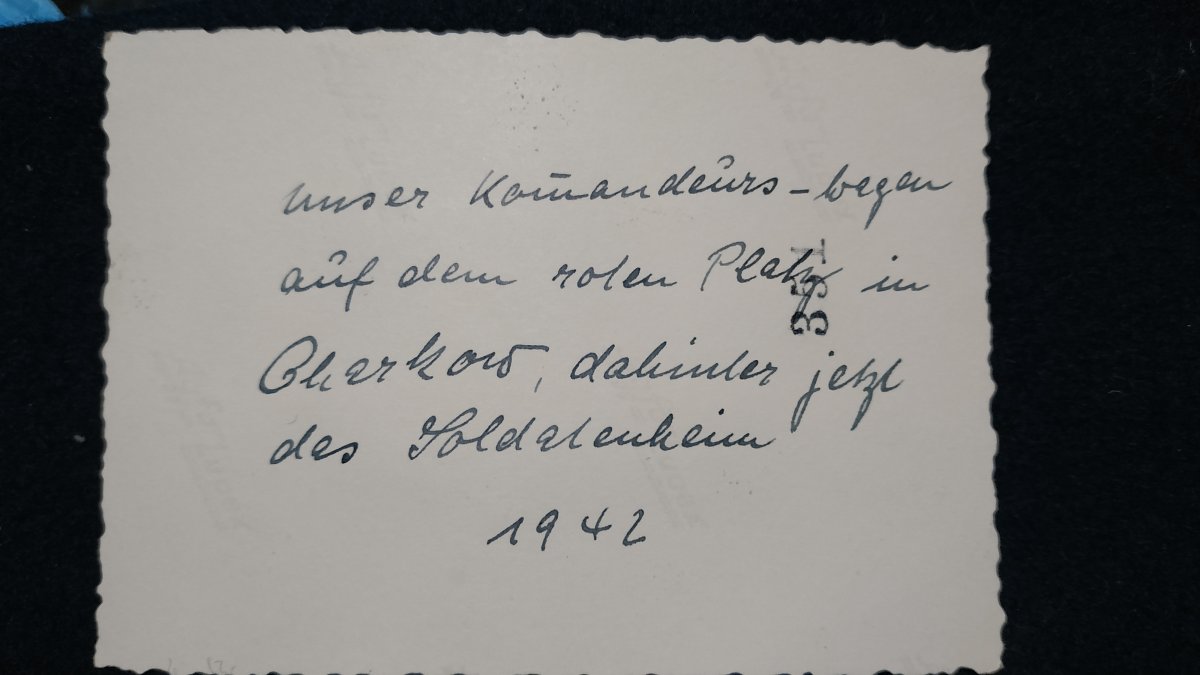 Unser Kom̄andeurs-wagen
auf dem roten Platz in
Charkow, dahinter jetzt
das Soldatenheim
1942
351